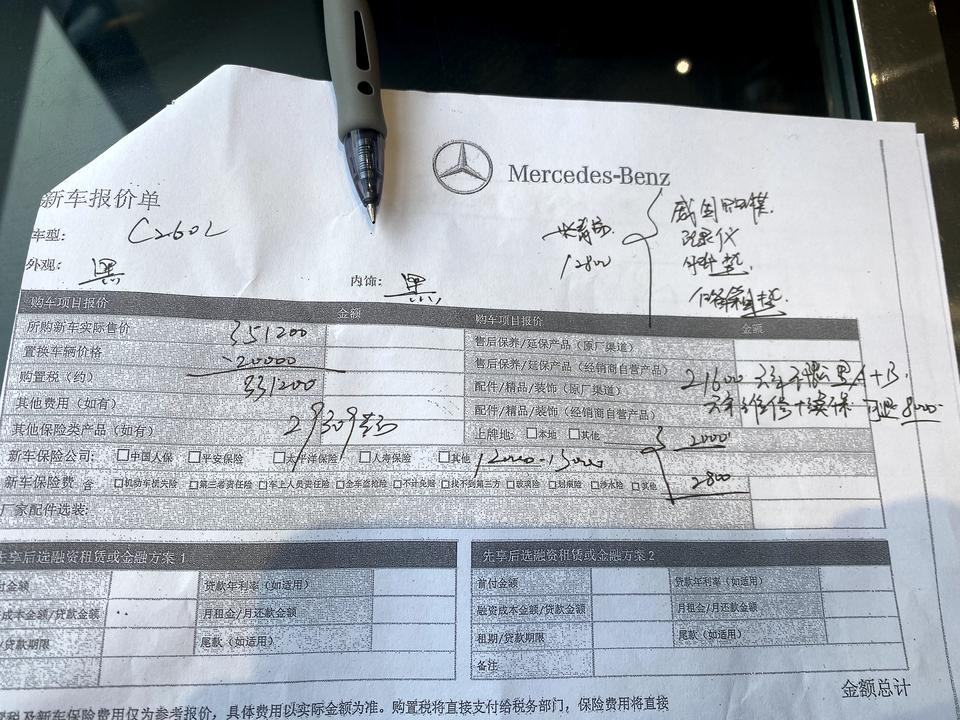 Mercedes-Benz
新车报价单
车型: C260L
外观: 黑
内饰: 黑
12800
记录仪
购车项目报价 金额 购车项目报价 金额
所购新车实际售价 351200 售后保养/延保产品（原厂渠道）
置换车辆价格 -20000 售后保养/延保产品（经销商自营产品）
购置税（约） 331200 配件/精品/装饰（原厂渠道） 21600
其他费用（如有） 配件/精品/装饰（经销商自营产品） 8000
其他保险类产品（如有） 29309 上牌地: □本地 □其他 2000
新车保险公司: □中国人保 □平安保险 □太平洋保险 □人寿保险 □其他 12000-13000
新车保险费 含 □机动车损失险 □第三者责任险 □车上人员责任险 □全车盗抢险 □不计免赔 □找不到第三方 □玻璃险 □划痕险 □涉水险 □其他 2800
厂家配件选装:
先享后选融资租赁或金融方案 1 先享后选融资租赁或金融方案 2
付金额 贷款年利率（如适用） 首付金额 贷款年利率（如适用）
成本金额/贷款金额 月租金/月还款金额 融资成本金额/贷款金额 月租金/月还款金额
/贷款期限 尾款（如适用） 租期/贷款期限 尾款（如适用）
备注
金额总计
税及新车保险费用仅为参考报价，具体费用以实际金额为准。购置税将直接支付给税务部门；保险费用将直接